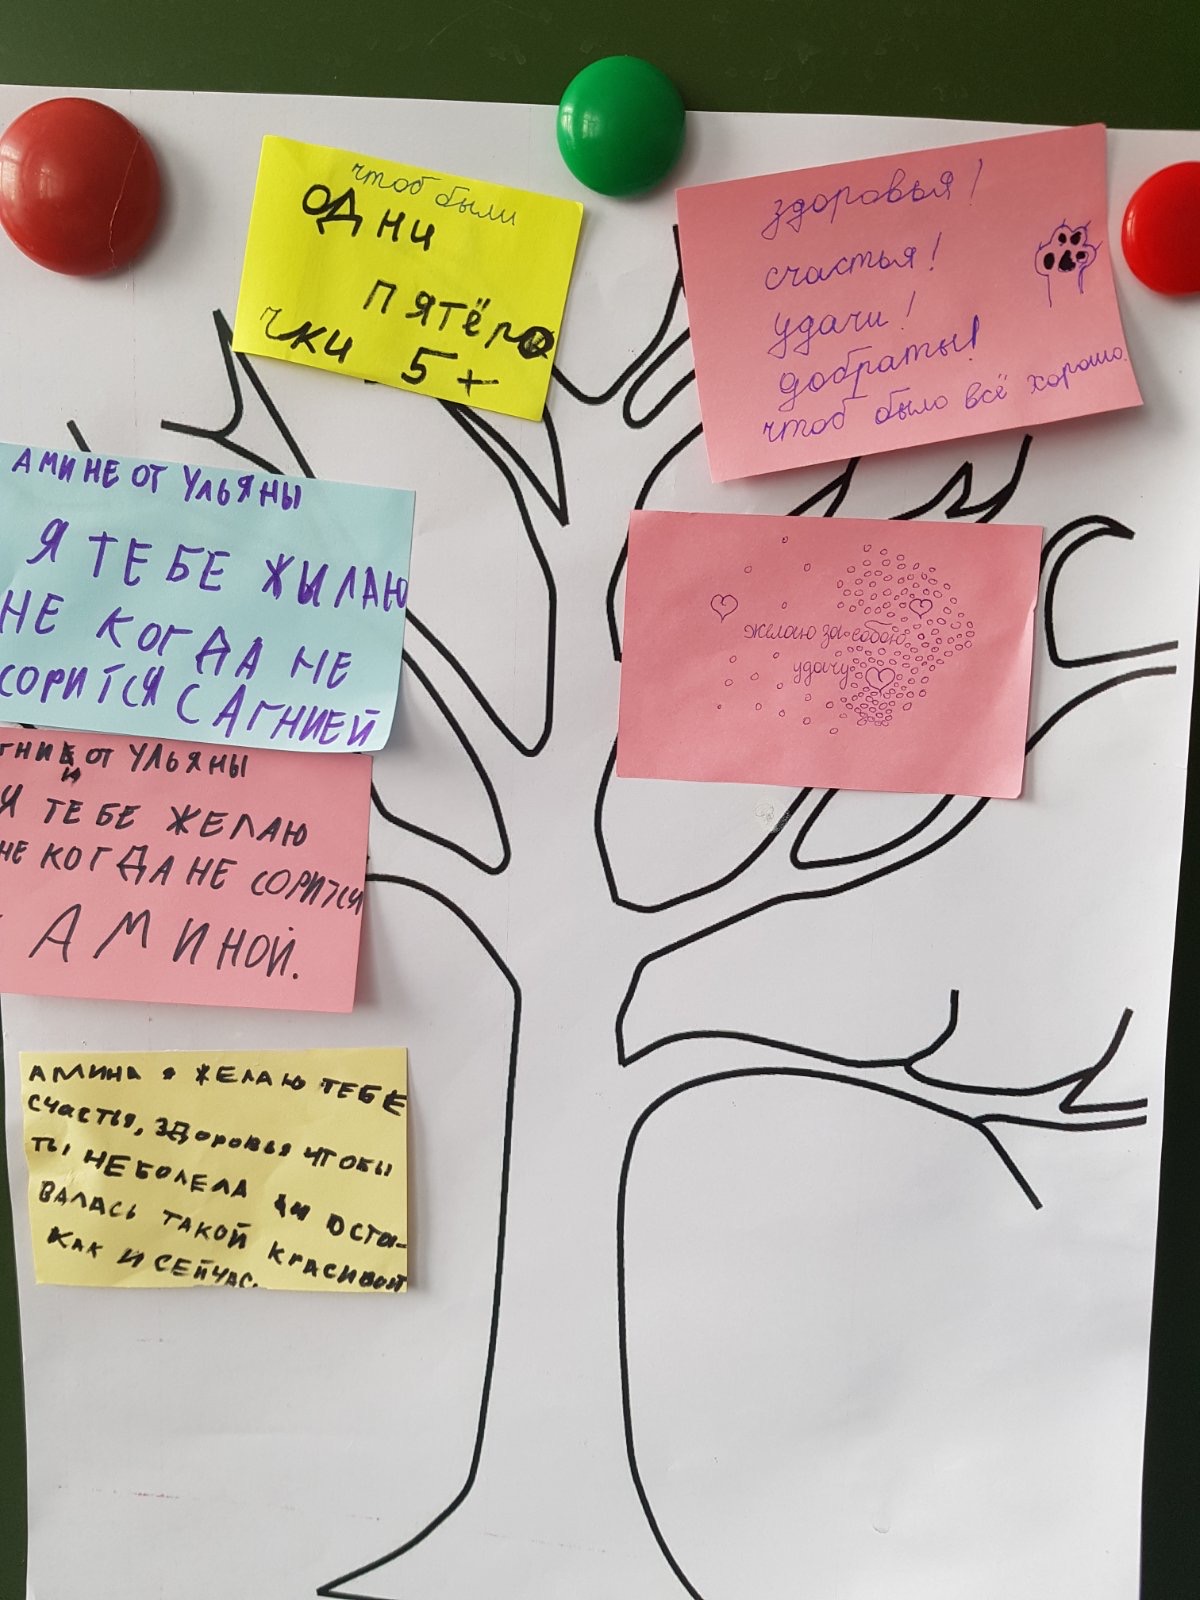 чтоб были
одни
пятёр
чки 5+
здоровья!
счастья!
удачи!
добраты!
чтоб было всё хорошо.
АМИНЕ ОТ УЛЬЯНЫ
Я ТЕБЕ ЖЫЛАЮ
НЕ КОГДА НЕ
СОРИТСЯ С АГНИЕЙ
желаю
удачу
ГНИИ ОТ УЛЬЯНЫ
Я ТЕБЕ ЖЕЛАЮ
НЕ КОГДА НЕ СОРИТСЯ
АМИНОЙ.
АМИНА Я ЖЕЛАЮ ТЕБЕ
СЧАСТЬЯ, ЗДОРОВЬЯ ЧТОБЫ
ТЫ НЕ БОЛЕЛА И ОСТА-
ВАЛАСЬ ТАКОЙ КРАСИВОЙ
КАК И СЕЙЧАС.